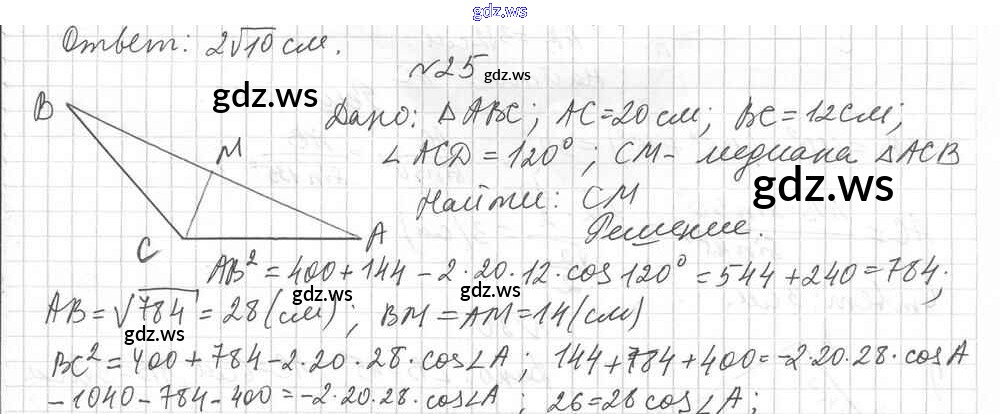 gdz.ws
Ответ: 2√10 см.
№25 gdz.ws
B gdz.ws Дано: △ABC; AC=20см; BC=12см;
M ∠ACD=120°; CM- медиана △ACB
Найти: CM gdz.ws
C A Решение.
AB²=400+144-2·20·12·cos120°=544+240=784;
gdz.ws gdz.ws
AB=√784=28(см); BM=AM=14(см)
BC²=400+784-2·20·28·cos∠A; 144+784+400=-2·20·28·cosA
-1040-784-400=-2·20·28·cos∠A; 26=28cos∠A;